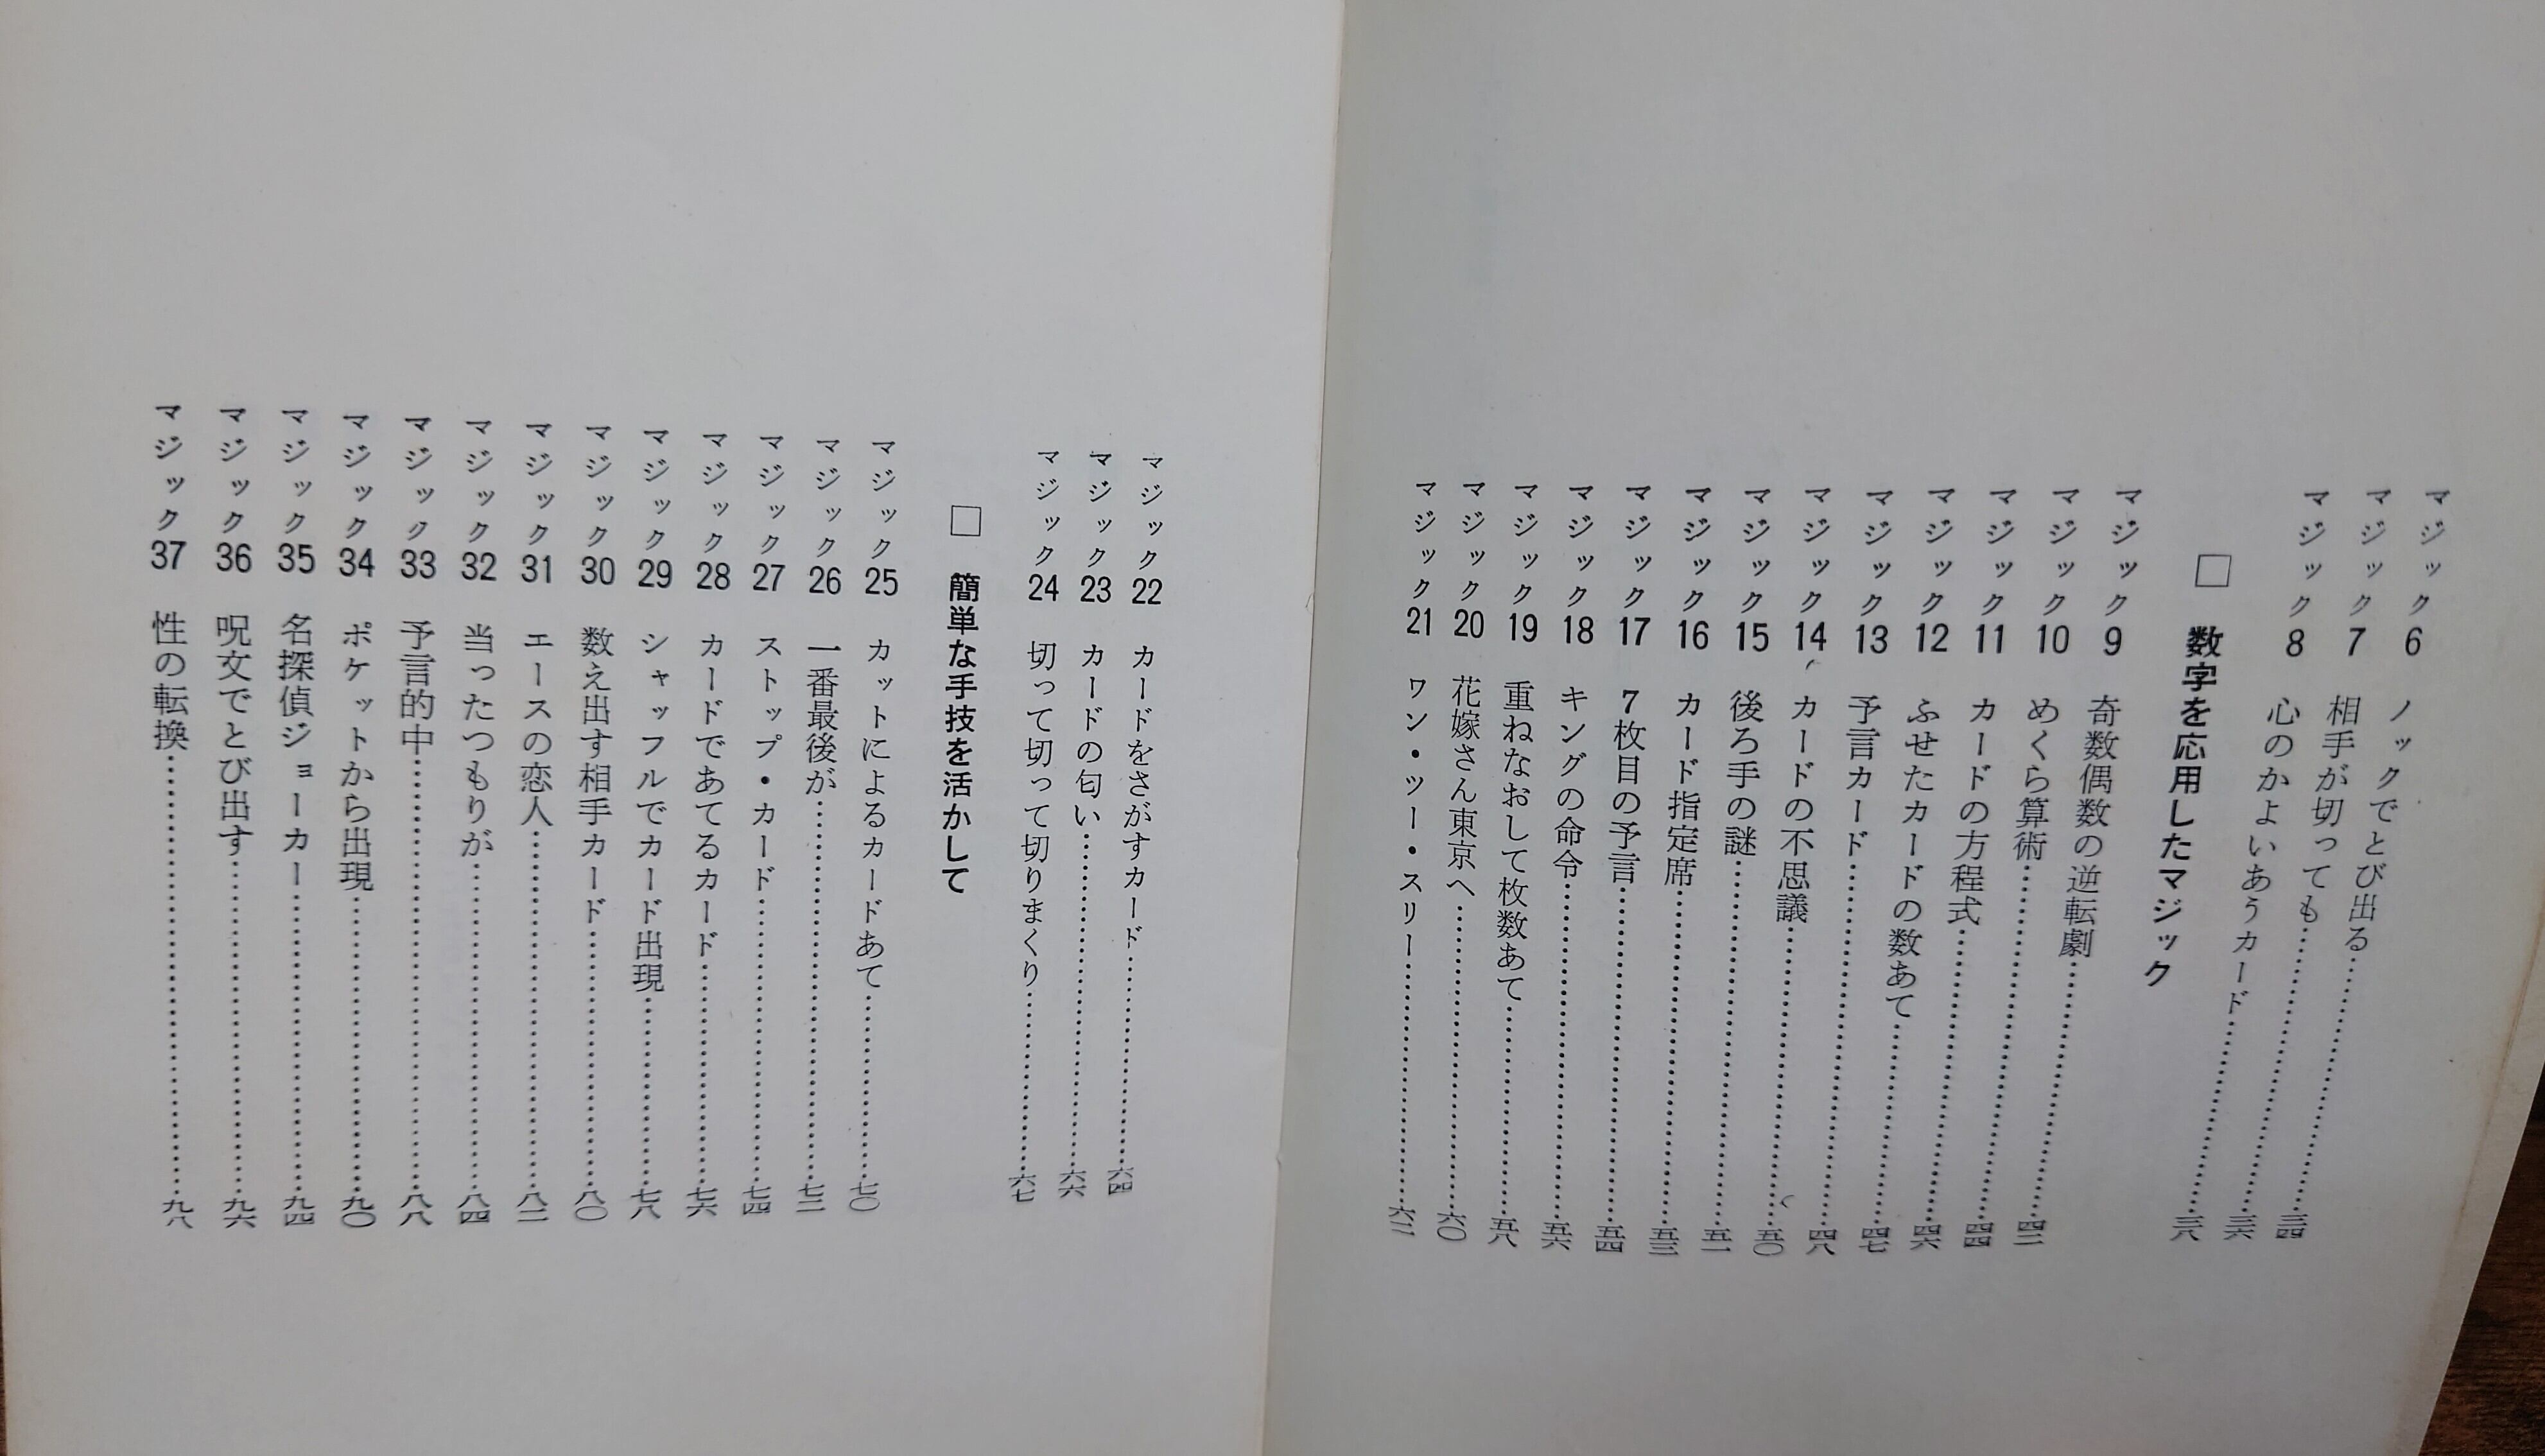 マジック6 ノックでとび出る……三四
マジック7 相手が切っても……三六
マジック8 心のかよいあうカード……三八
□ 数字を応用したマジック
マジック9 奇数偶数の逆転劇……四二
マジック10 めくら算術……四四
マジック11 カードの方程式……四六
マジック12 ふせたカードの数あて……四七
マジック13 予言カード……四八
マジック14 カードの不思議……五〇
マジック15 後ろ手の謎……五二
マジック16 カード指定席……五三
マジック17 7枚目の予言……五四
マジック18 キングの命令……五六
マジック19 重ねなおして枚数あて……五八
マジック20 花嫁さん東京へ……六〇
マジック21 ワン・ツー・スリー……六二
マジック22 カードをさがすカード……六四
マジック23 カードの匂い……六六
マジック24 切って切って切りまくり……六七
□ 簡単な手技を活かして
マジック25 カットによるカードあて……七〇
マジック26 一番最後が……七二
マジック27 ストップ・カード……七四
マジック28 カードであてるカード……七六
マジック29 シャッフルでカード出現……七八
マジック30 数え出す相手カード……八〇
マジック31 エースの恋人……八二
マジック32 当ったつもりが……八四
マジック33 予言的中……八八
マジック34 ポケットから出現……九〇
マジック35 名探偵ジョーカー……九四
マジック36 呪文でとび出す……九六
マジック37 性の転換……九八